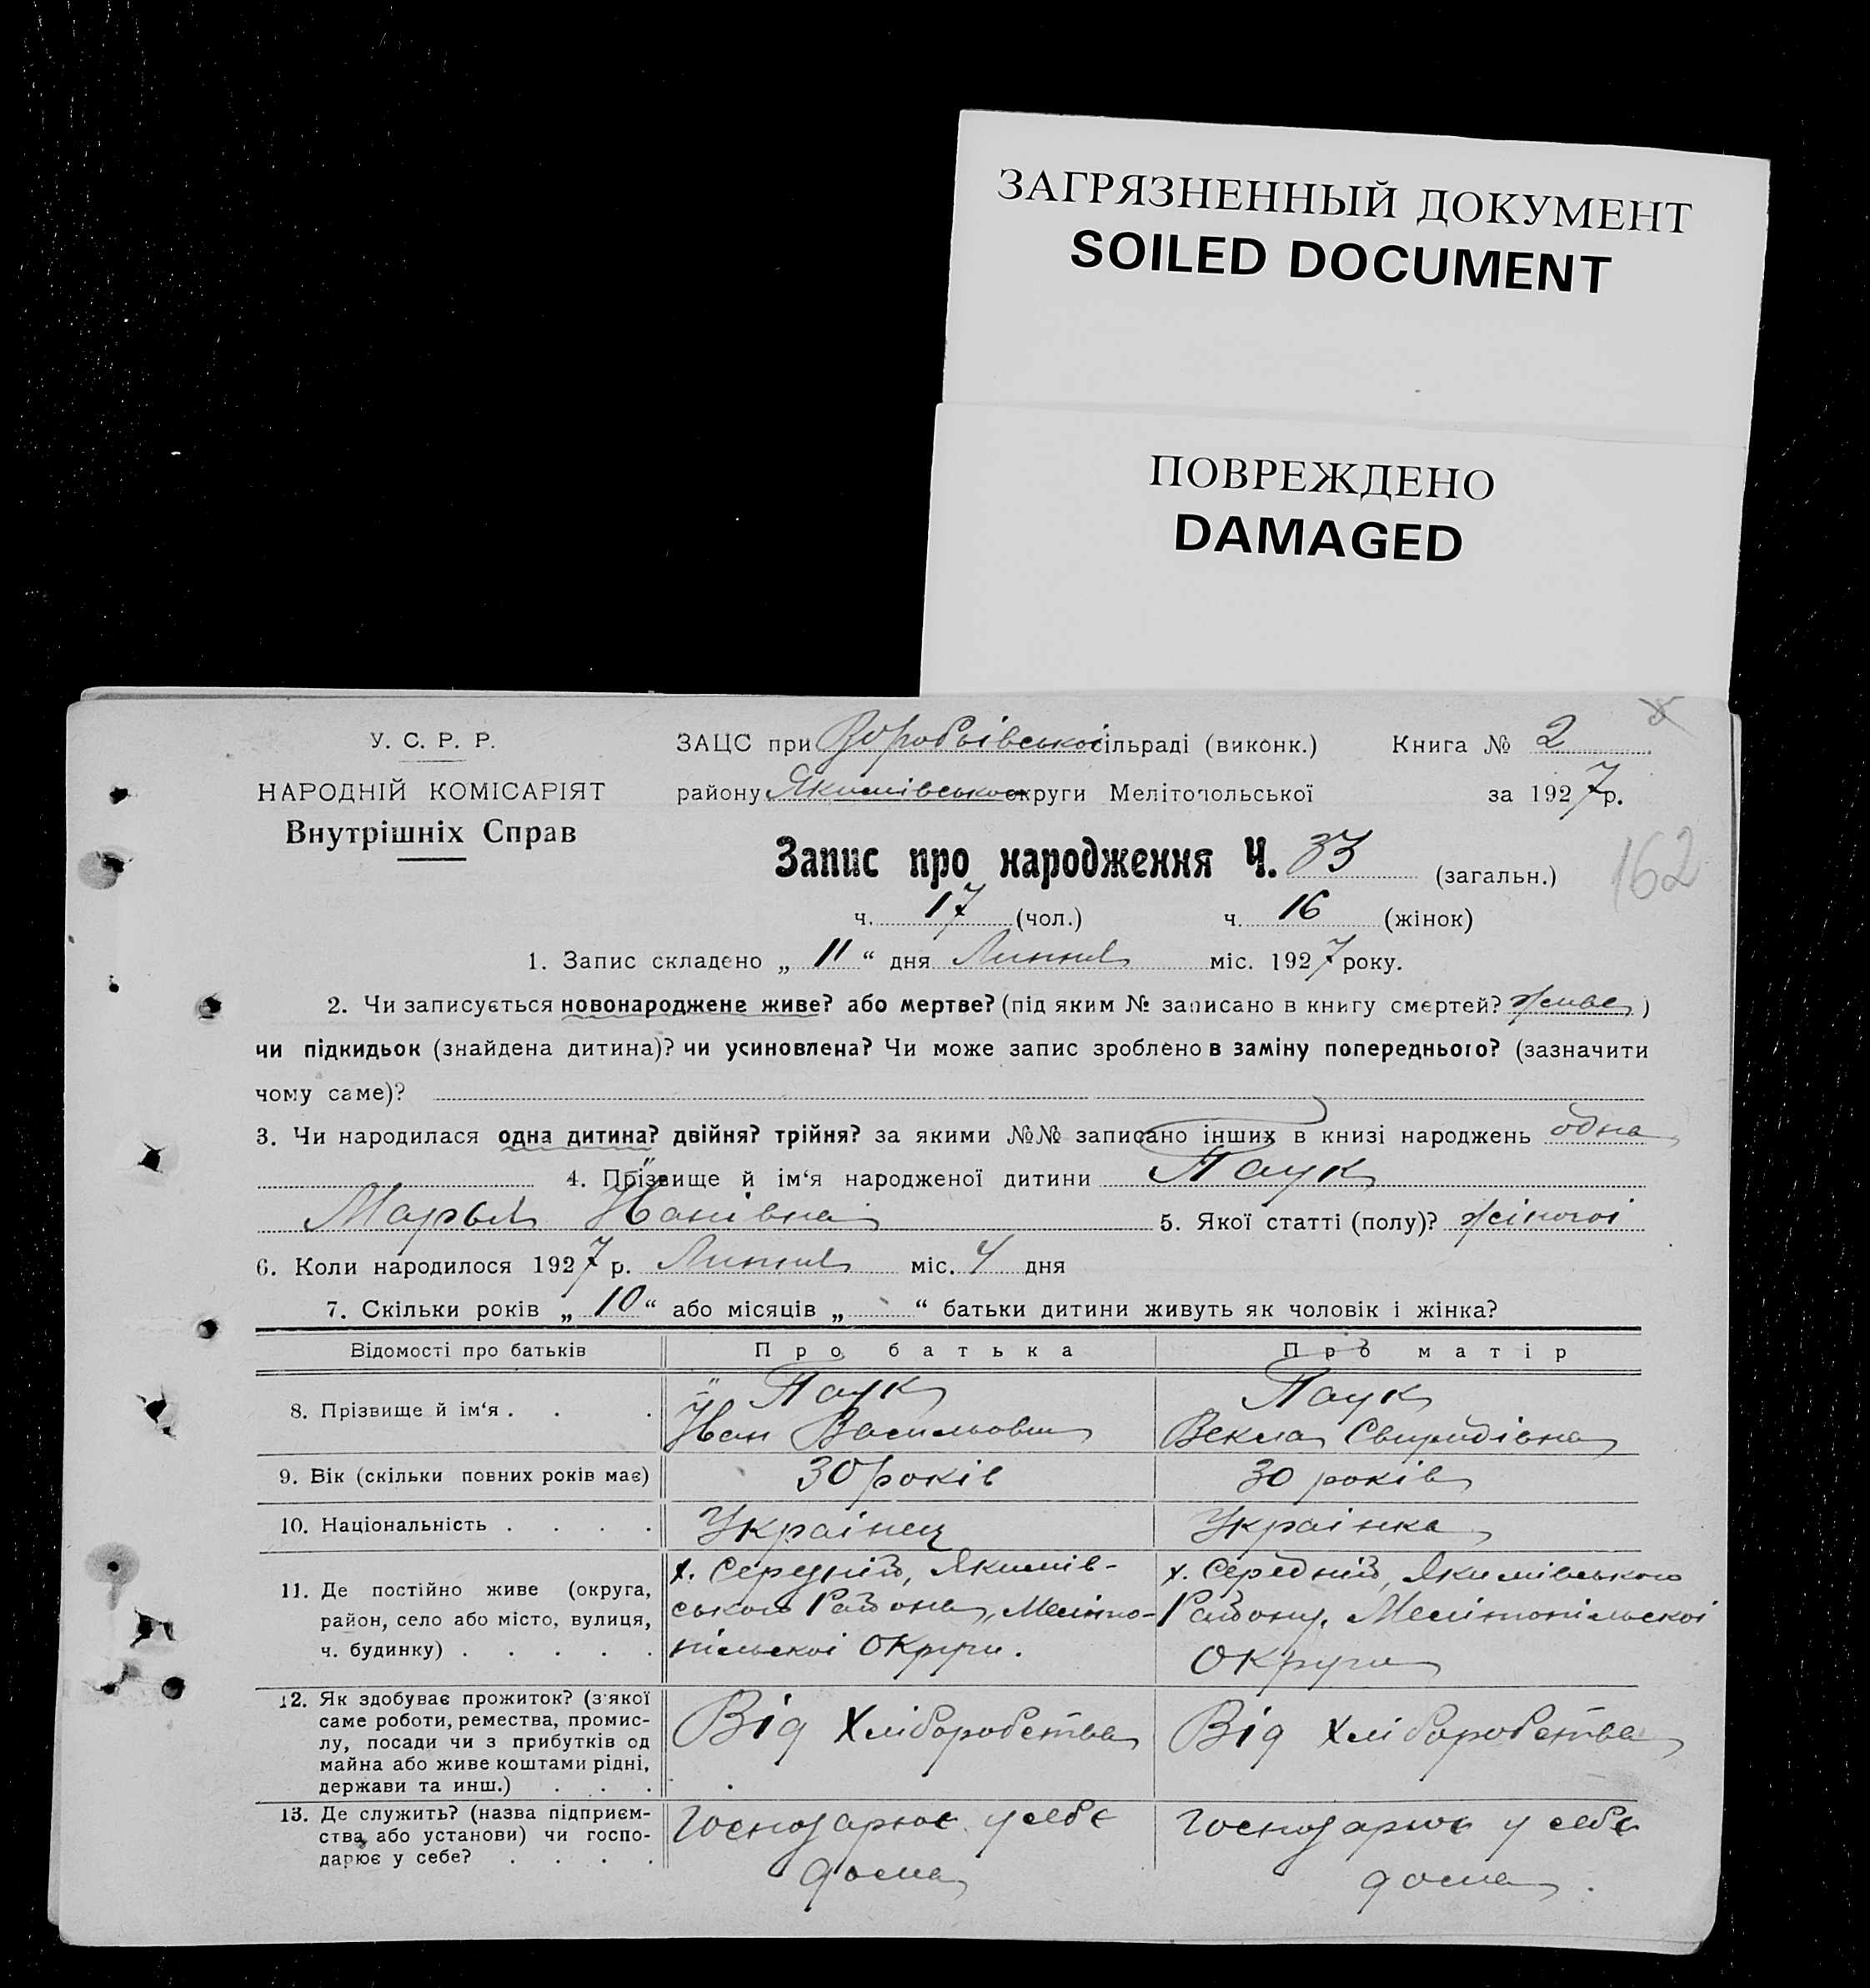 ЗАГРЯЗНЕННЫЙ ДОКУМЕНТ
SOILED DOCUMENT
ПОВРЕЖДЕНО
DAMAGED
У. С. Р. Р.
НАРОДНІЙ КОМІСАРІЯТ
Внутрішніх Справ
ЗАЦС при Воробьівської сільраді (виконк.) Книга № 2
району Якимівського округи Мелітопольської за 1927 р.
162
Запис про народження Ч. 33 (загальн.)
ч. 17 (чол.) ч. 16 (жінок)
1. Запис складено „ 11 “ дня Липня міс. 1927 року.
2. Чи записується новонароджене живе? або мертве? (під яким № записано в книгу смертей? живе )
чи підкидьок (знайдена дитина)? чи усиновлена? Чи може запис зроблено в заміну попереднього? (зазначити
чому саме)?
3. Чи народилася одна дитина? двійня? трійня? за якими №№ записано інших в книзі народжень одна
4. Прізвище й ім‘я народженої дитини Паук
Марья Іванівна 5. Якої статті (полу)? жіночоі
6. Коли народилося 1927 р. Липня міс. 4 дня
7. Скільки років „ 10 “ або місяців „ “ батьки дитини живуть як чоловік і жінка?
Відомості про батьків Про батька Про матір
8. Прізвище й ім‘я . . . Паук Іван Васильович Паук Векла Свиридівна
9. Вік (скільки повних років має) 30 років 30 років
10. Національність . . . . Украінец Украінка
11. Де постійно живе (округа, район, село або місто, вулиця, ч. будинку) . . . . .
х. Середній, Якимів-
ського Района, Меліто-
пільскоі Округи.
х. Середній, Якимівського
Району, Мелітопільскоі
Округи
12. Як здобуває прожиток? (з'якої
саме роботи, ремества, промис-
лу, посади чи з прибутків од
майна або живе коштами рідні,
держави та инш.) . . .
Від Хліборобства Від Хліборобства
13. Де служить? (назва підприєм-
ства або установи) чи госпо-
дарює у себе? . . . .
Господарює у себе
дома
Господарює у себе
дома.